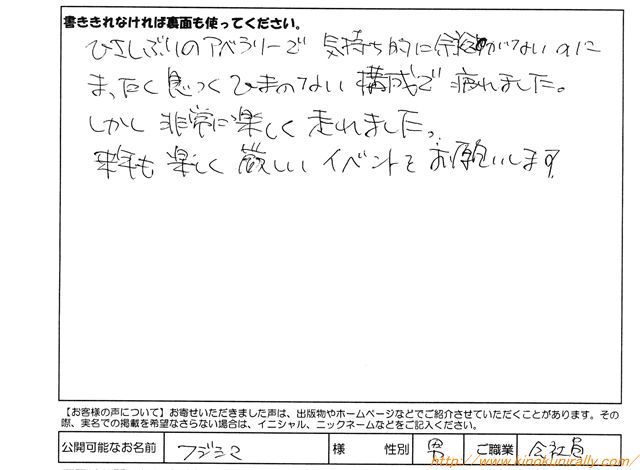 書ききれなければ裏面も使ってください。
ひさしぶりのアベラリーで 気持ち的に余裕がないのに
まったく息つくひまのない 構成で 疲れました。
しかし 非常に楽しく 走れました。
来年も 楽しく 厳しい イベントを お願いします
【お客様の声について】お寄せいただきました声は、出版物やホームページなどでご紹介させていただくことがあります。その
際、実名での掲載を希望なさらない場合は、イニシャル、ニックネームなどをご記入ください。
公開可能なお名前 フジシマ 様 性別 男 ご職業 会社員
http://www.kinokunirally.com/